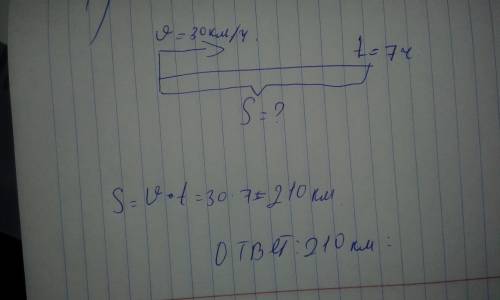 1)
v = 30км/ч.
t = 7ч
S = ?
S = v • t = 30 · 7 = 210 км
ОТВЕТ: 210 км :